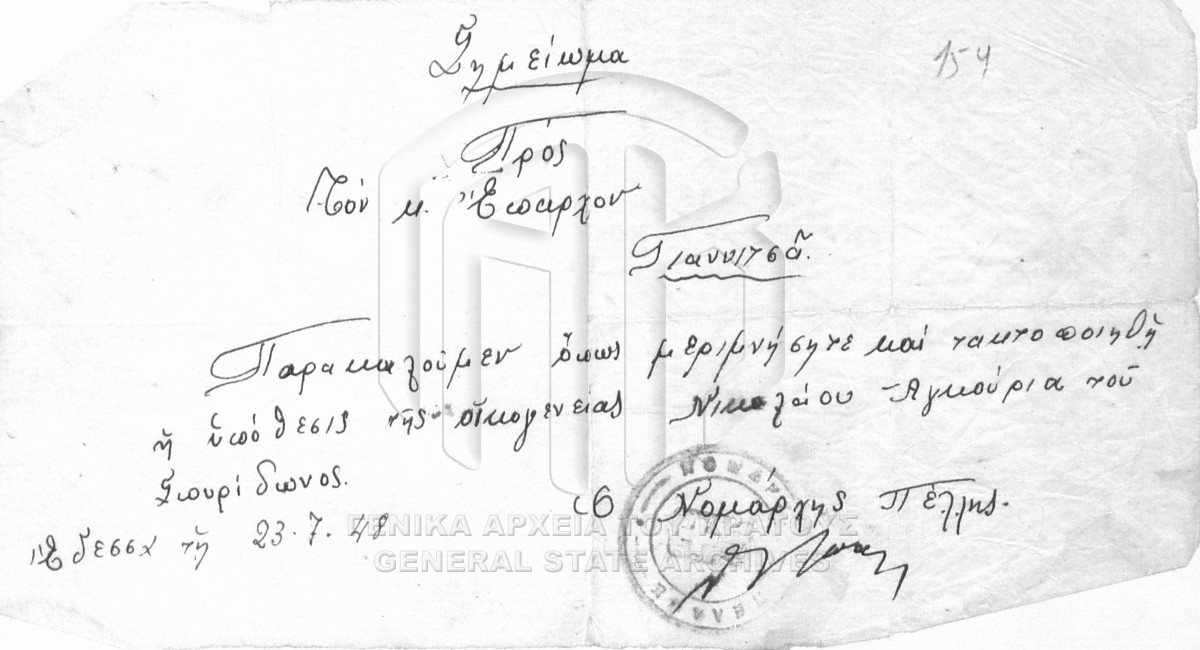 Σημείωμα
154
Πρός
Τόν κ. Ἔπαρχον
Γιαννιτσᾶ.
Παρακαλοῦμεν ὅπως μεριμνήσητε καί τακτοποιηθῆ
ἡ ὑπόθεσις τῆς οἰκογενείας Νικολάου Ἀγκούρια τοῦ
Σπυρίδωνος.
Ὁ Νομάρχης Πέλλης.
Ἔδεσσα τῆ 23.7.48
ΓΕΝΙΚΑ ΑΡΧΕΙΑ ΤΟΥ ΚΡΑΤΟΥΣ
GENERAL STATE ARCHIVES